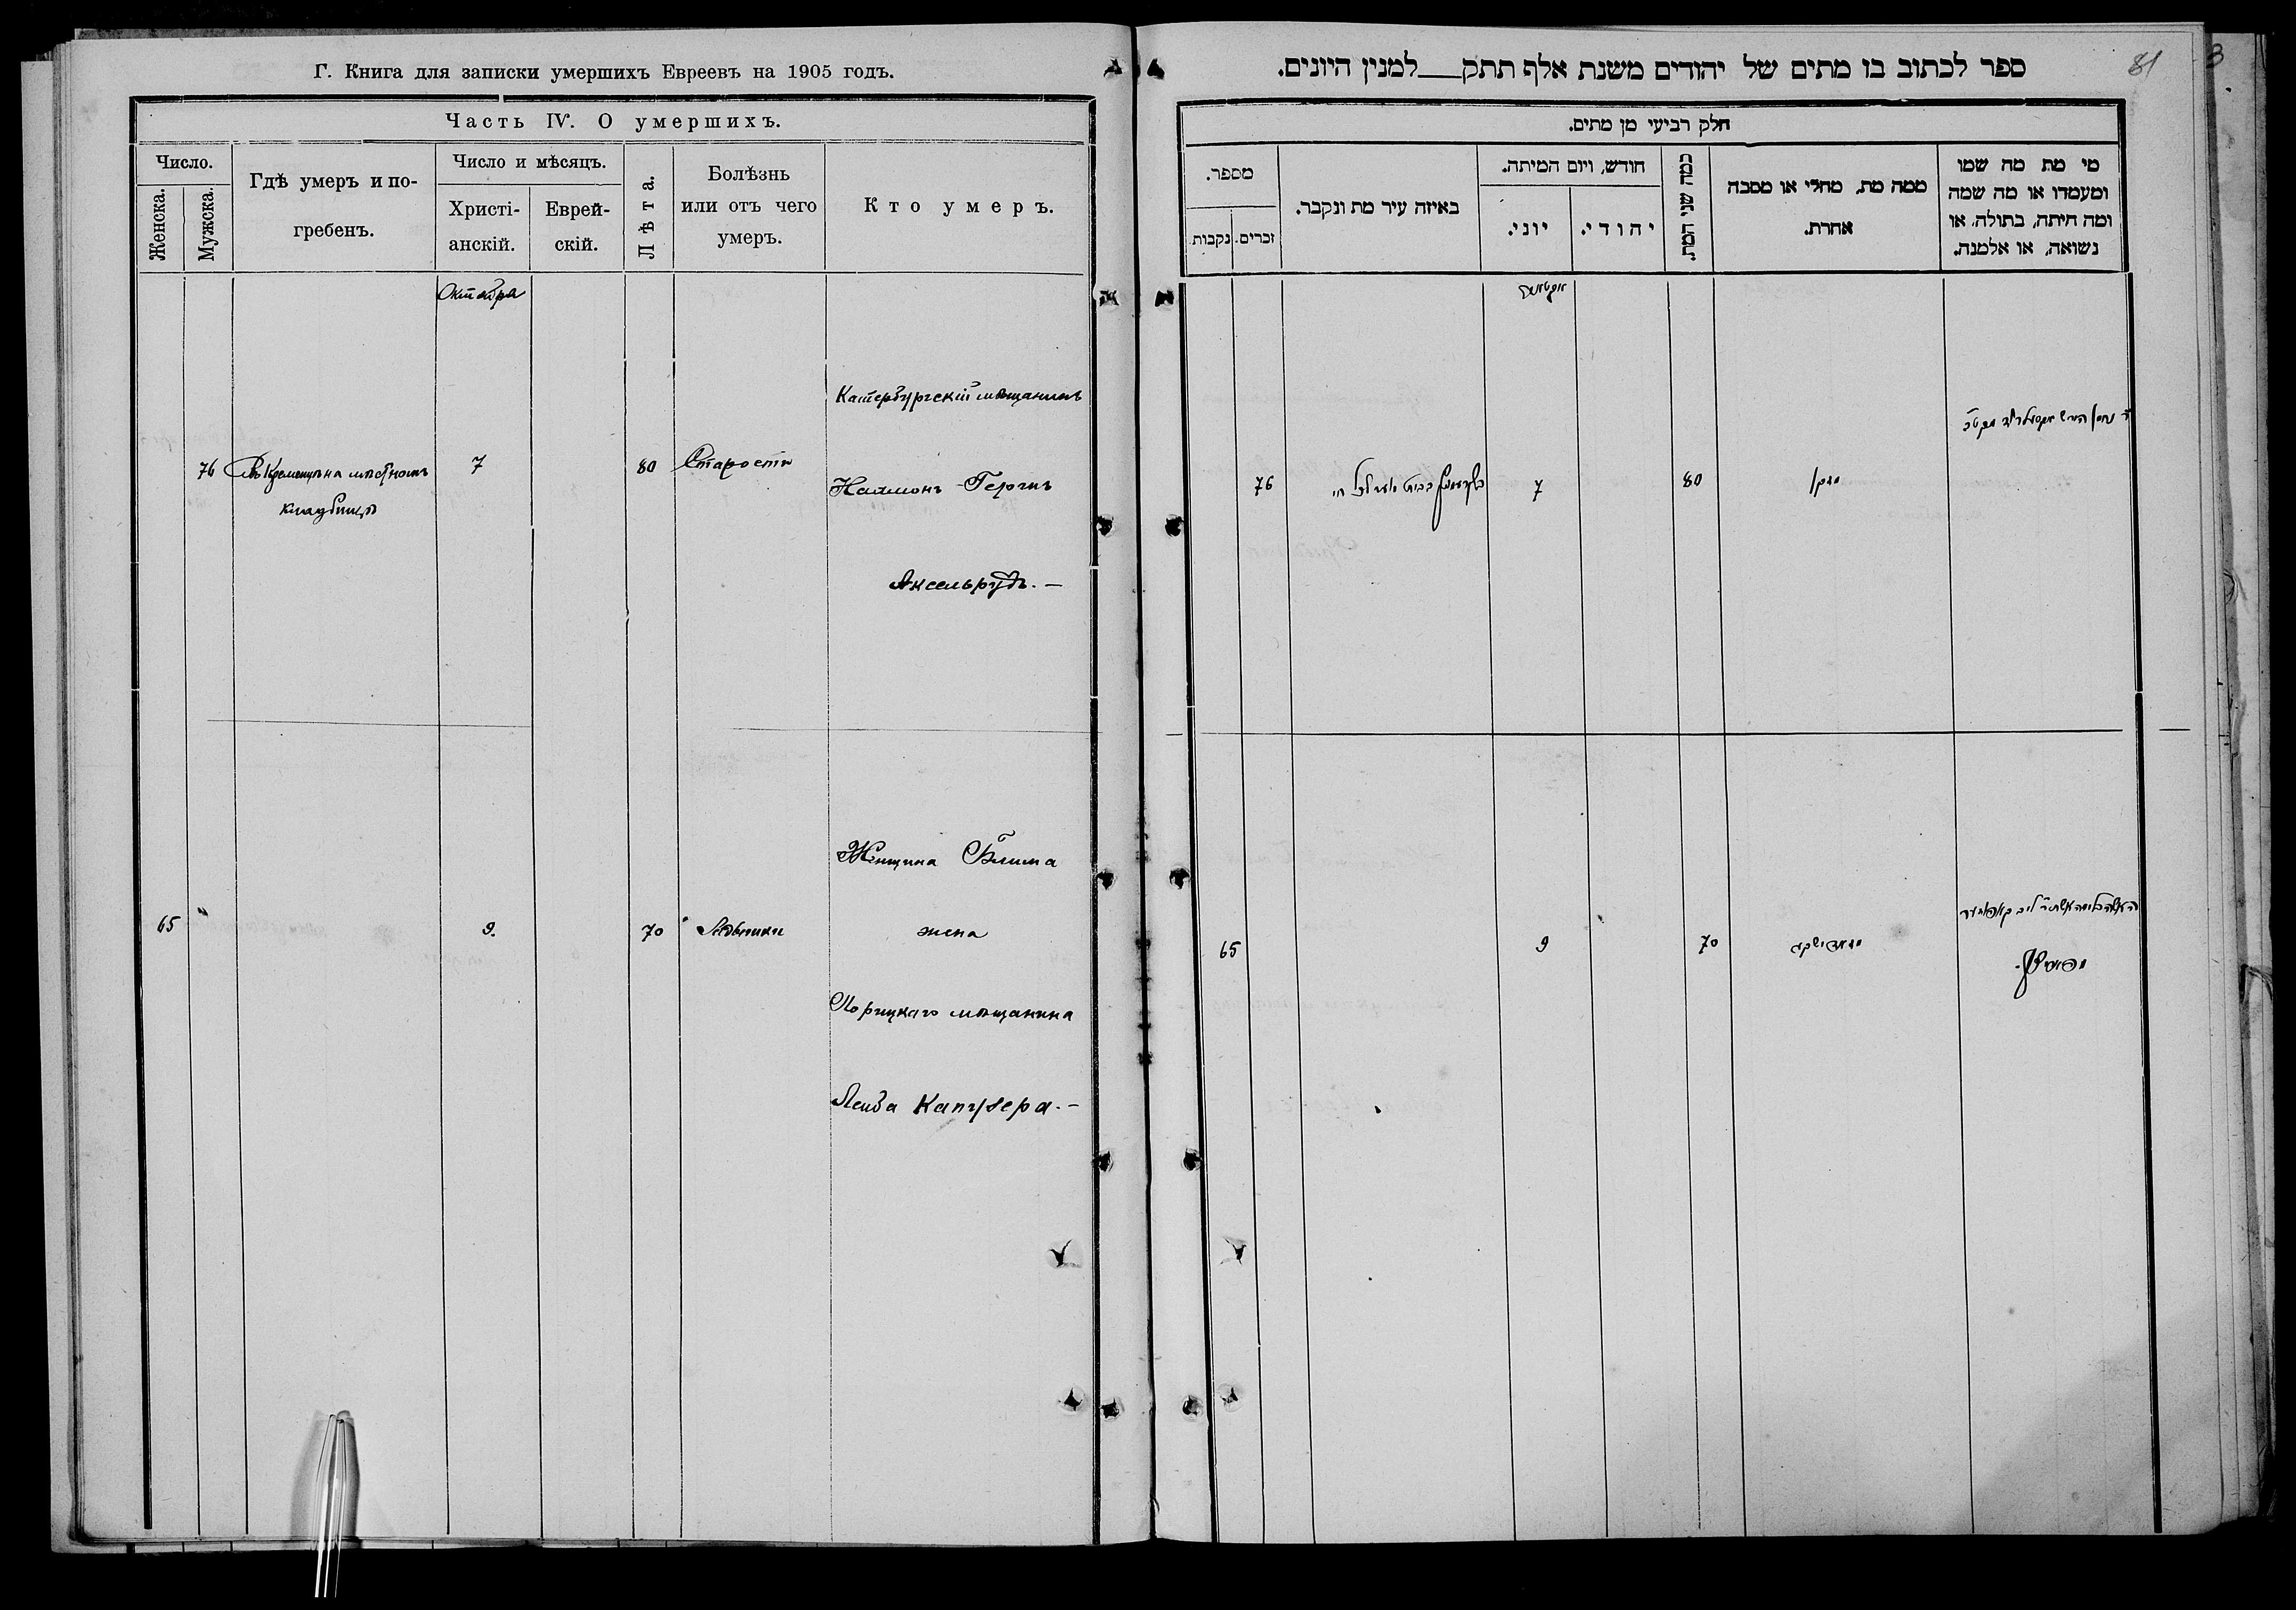 Г. Книга для записки умершихъ Евреевъ на 1905 годъ.
Часть IV. О умершихъ.
Число.
Женска.
Мужска.
Гдѣ умеръ и по-
гребенъ.
Число и мѣсяцъ.
Христі-
анскій.
Еврей-
скій.
Лѣта.
Болѣзнь
или отъ чего
умеръ.
Кто умеръ.
Октября
76 Въ Кременцѣ на мѣстномъ 7 80 Старости
кладбищѣ
Катербургскій мѣщанинъ
Гершъ
Аксельрудъ. —
Женщина Блима
65 " 9. 70
жена
Порицкаго мѣщанина
Лейба Капузера. —
ספר לכתוב בו מתים של יהודים משנת אלף תתק__למנין היונים.
81
3
חלק רביעי מן מתים.
מספר.
נקבות
זכרים.
באיזה עיר מת ונקבר.
חודש, ויום המיתה.
יוני.
יהודי.
כמה שני המת.
ממה מת, מחלי או מסבה
אחרת.
מי מת מה שמו
ומעמדו או מה שמה
ומה חיתה, בתולה, או
נשואה, או אלמנה.
76 7 80 זקן
65 9 70